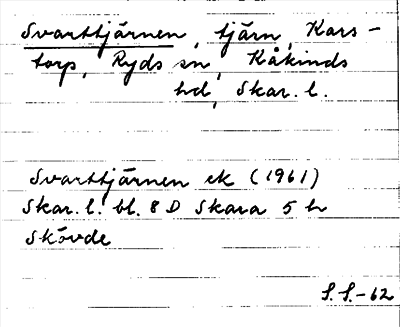 Svarttjärnen, tjärn, Kars-
torp, Ryds sn, Kåkinds
hd, Skar. l.
Svarttjärnen ek (1961)
Skar. l. bl. 8 D Skara 5 h
Skövde
S. S.-62